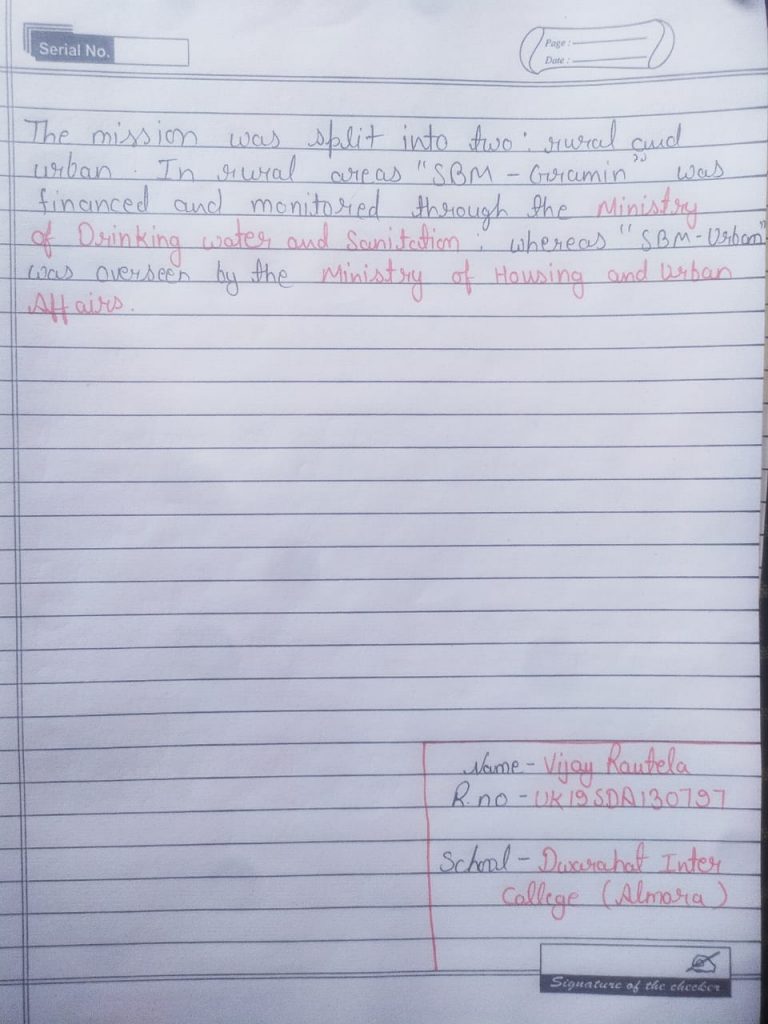 Serial No.
Page :
Date :
The mission was split into two : rural and
urban . In rural areas "SBM - Gramin" was
financed and monitored through the Ministry
of Drinking water and Sanitation ; whereas "SBM-Urban"
was overseen by the Ministry of Housing and Urban
Affairs.
Name - Vijay Rautela
R.no - UK19SDA130797
School - Dwarahat Inter
College (Almora)
Signature of the checker